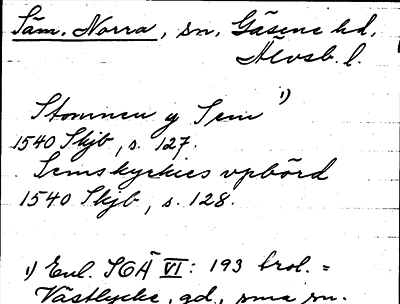 Säm, Norra, sn, Gäsene hd,
Älvsb. l.
Stommen y Sem 1)
1540 Skjb, s. 127.
Semskyrkies vpbörd
1540 Skjb, s. 128.
1) Enl. SOÄ VI: 193 trol. =
Västlycke, gd, sma sn.